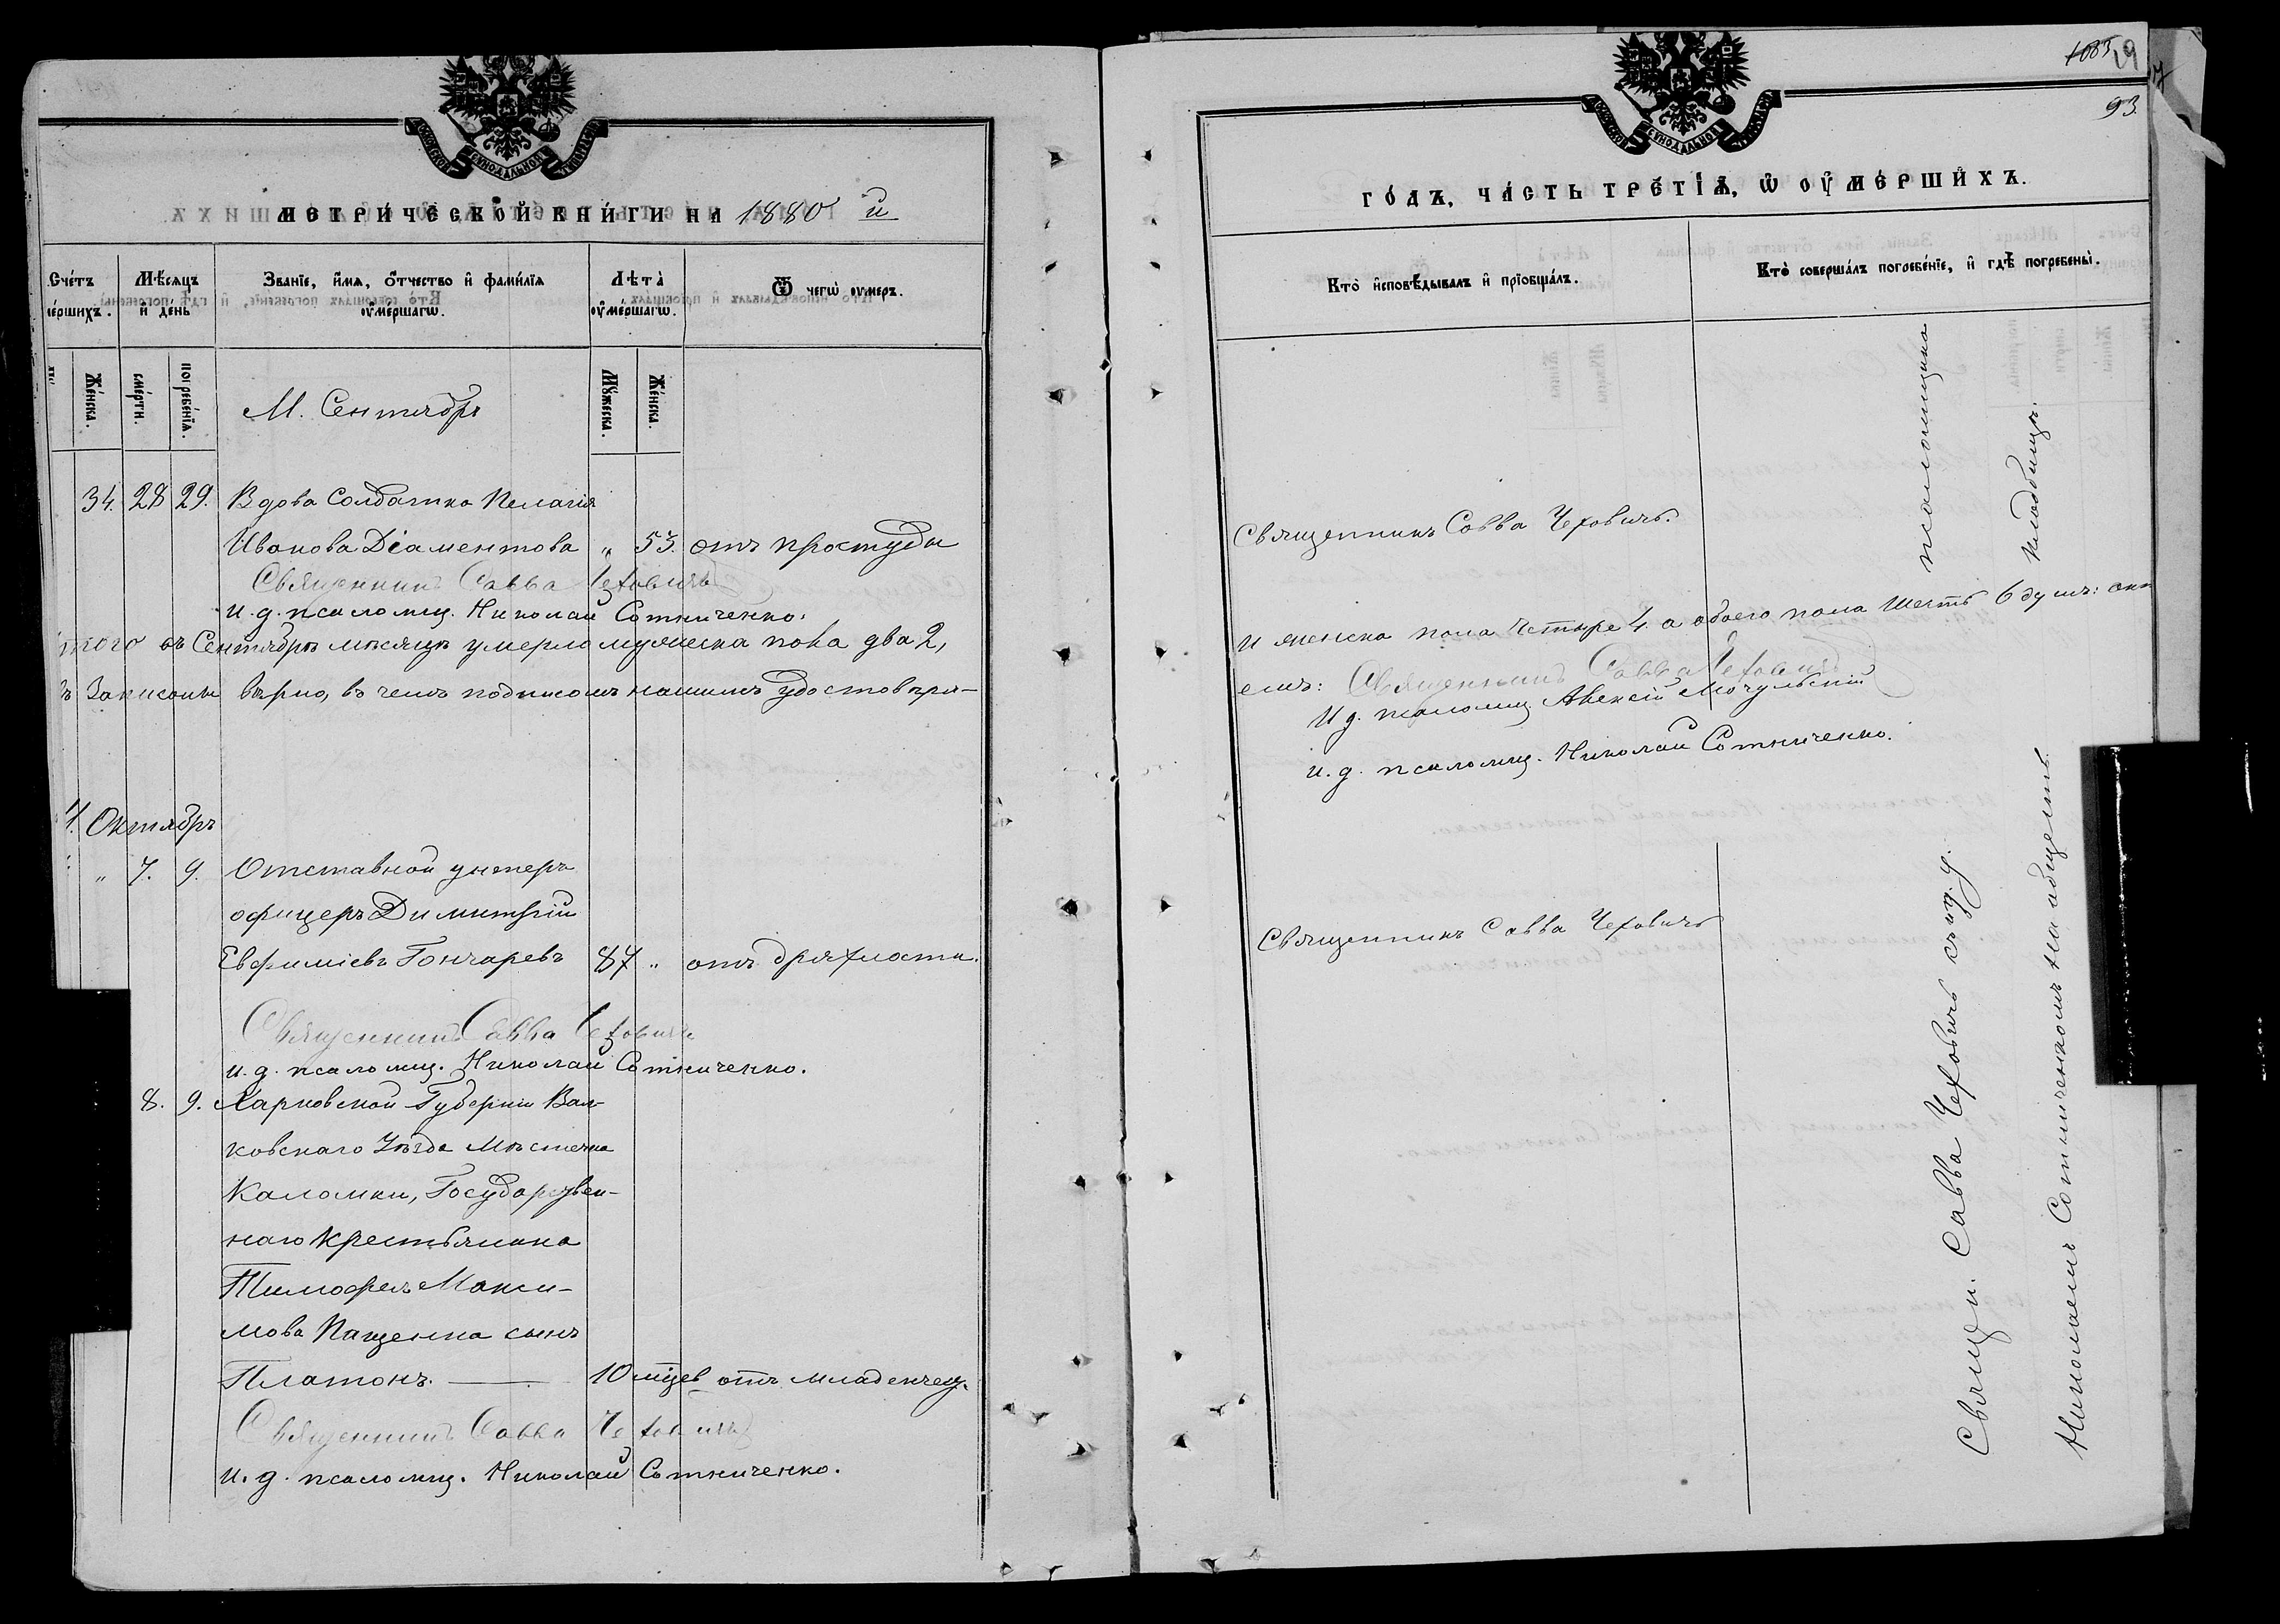 МЕТРИ́ЧЕСКОЙ КНИ́ГИ НА 1880 й
Сче́тъ
ме́ршихъ.
Мѣ́сяцъ
и҆ де́нь
Зва́нїе, и҆́мѧ, о҆́тчество и҆ фами́лїѧ
оу҆ме́ршагѡ.
Лѣта̀
оу҆ме́ршагѡ.
Ѿ чегѡ̀ оу҆меръ.
Же́нска.
сме́рти.
погребе́нїѧ.
Мꙋ́жеска.
Же́нска.
М. Сентябрь
34. 28 29. Вдова Солдатка Пелагія
Иванова Діаментова „ 53. отъ простуды
Священникъ Савва Чеховичъ
и. д. псаломщ. Николай Сотниченко.
Итого въ Сентябрѣ мѣсяцѣ умерло мужеска пола два 2,
Записаны вѣрно, въ чемъ подписомъ нашимъ удостовѣря-
Октябрь
„ 7. 9. Отставной унтеръ
офицеръ Димитрій
Евфиміевъ Гончаревъ 87 „ отъ дряхлости.
Священникъ Савва Чеховичъ
и. д. псаломщ. Николай Сотниченко.
8. 9. Харковской Губерніи Вал-
ковскаго Уѣзда Мѣстечка
Каломки, Государствен-
наго Крестьянина
Тимофея Макси-
мова Пащенка сынъ
Платонъ. — 10 мцев отъ младенчец.
Священникъ Савва Чеховичъ
и. д. псаломщ. Николай Сотниченко.
1085
93.
ГО́ДЪ, ЧА́СТЬ ТРЕ́ТЇѦ, Ѡ҆ ОУ҆МЕ́РШИХЪ.
Кто̀ и҆сповѣ́дывалъ и҆ прїѡбща́лъ.
Кто̀ соверша́лъ погребе́нїе, и҆ гдѣ̀ погребены̀.
Священникъ Савва Чеховичъ.
и женска пола Четыре 4. а обоего пола Шесть 6 душъ:
емъ: Священникъ Савва Чеховичъ
И д. псаломщ. Алексій Мочульскій
и. д. псаломщ. Николай Сотниченко.
Священникъ Савва Чеховичъ
Священ. Савва Чеховичъ съ и. д. псаломщика
Николаемъ Сотниченкомъ на общемъ кладбищѣ.